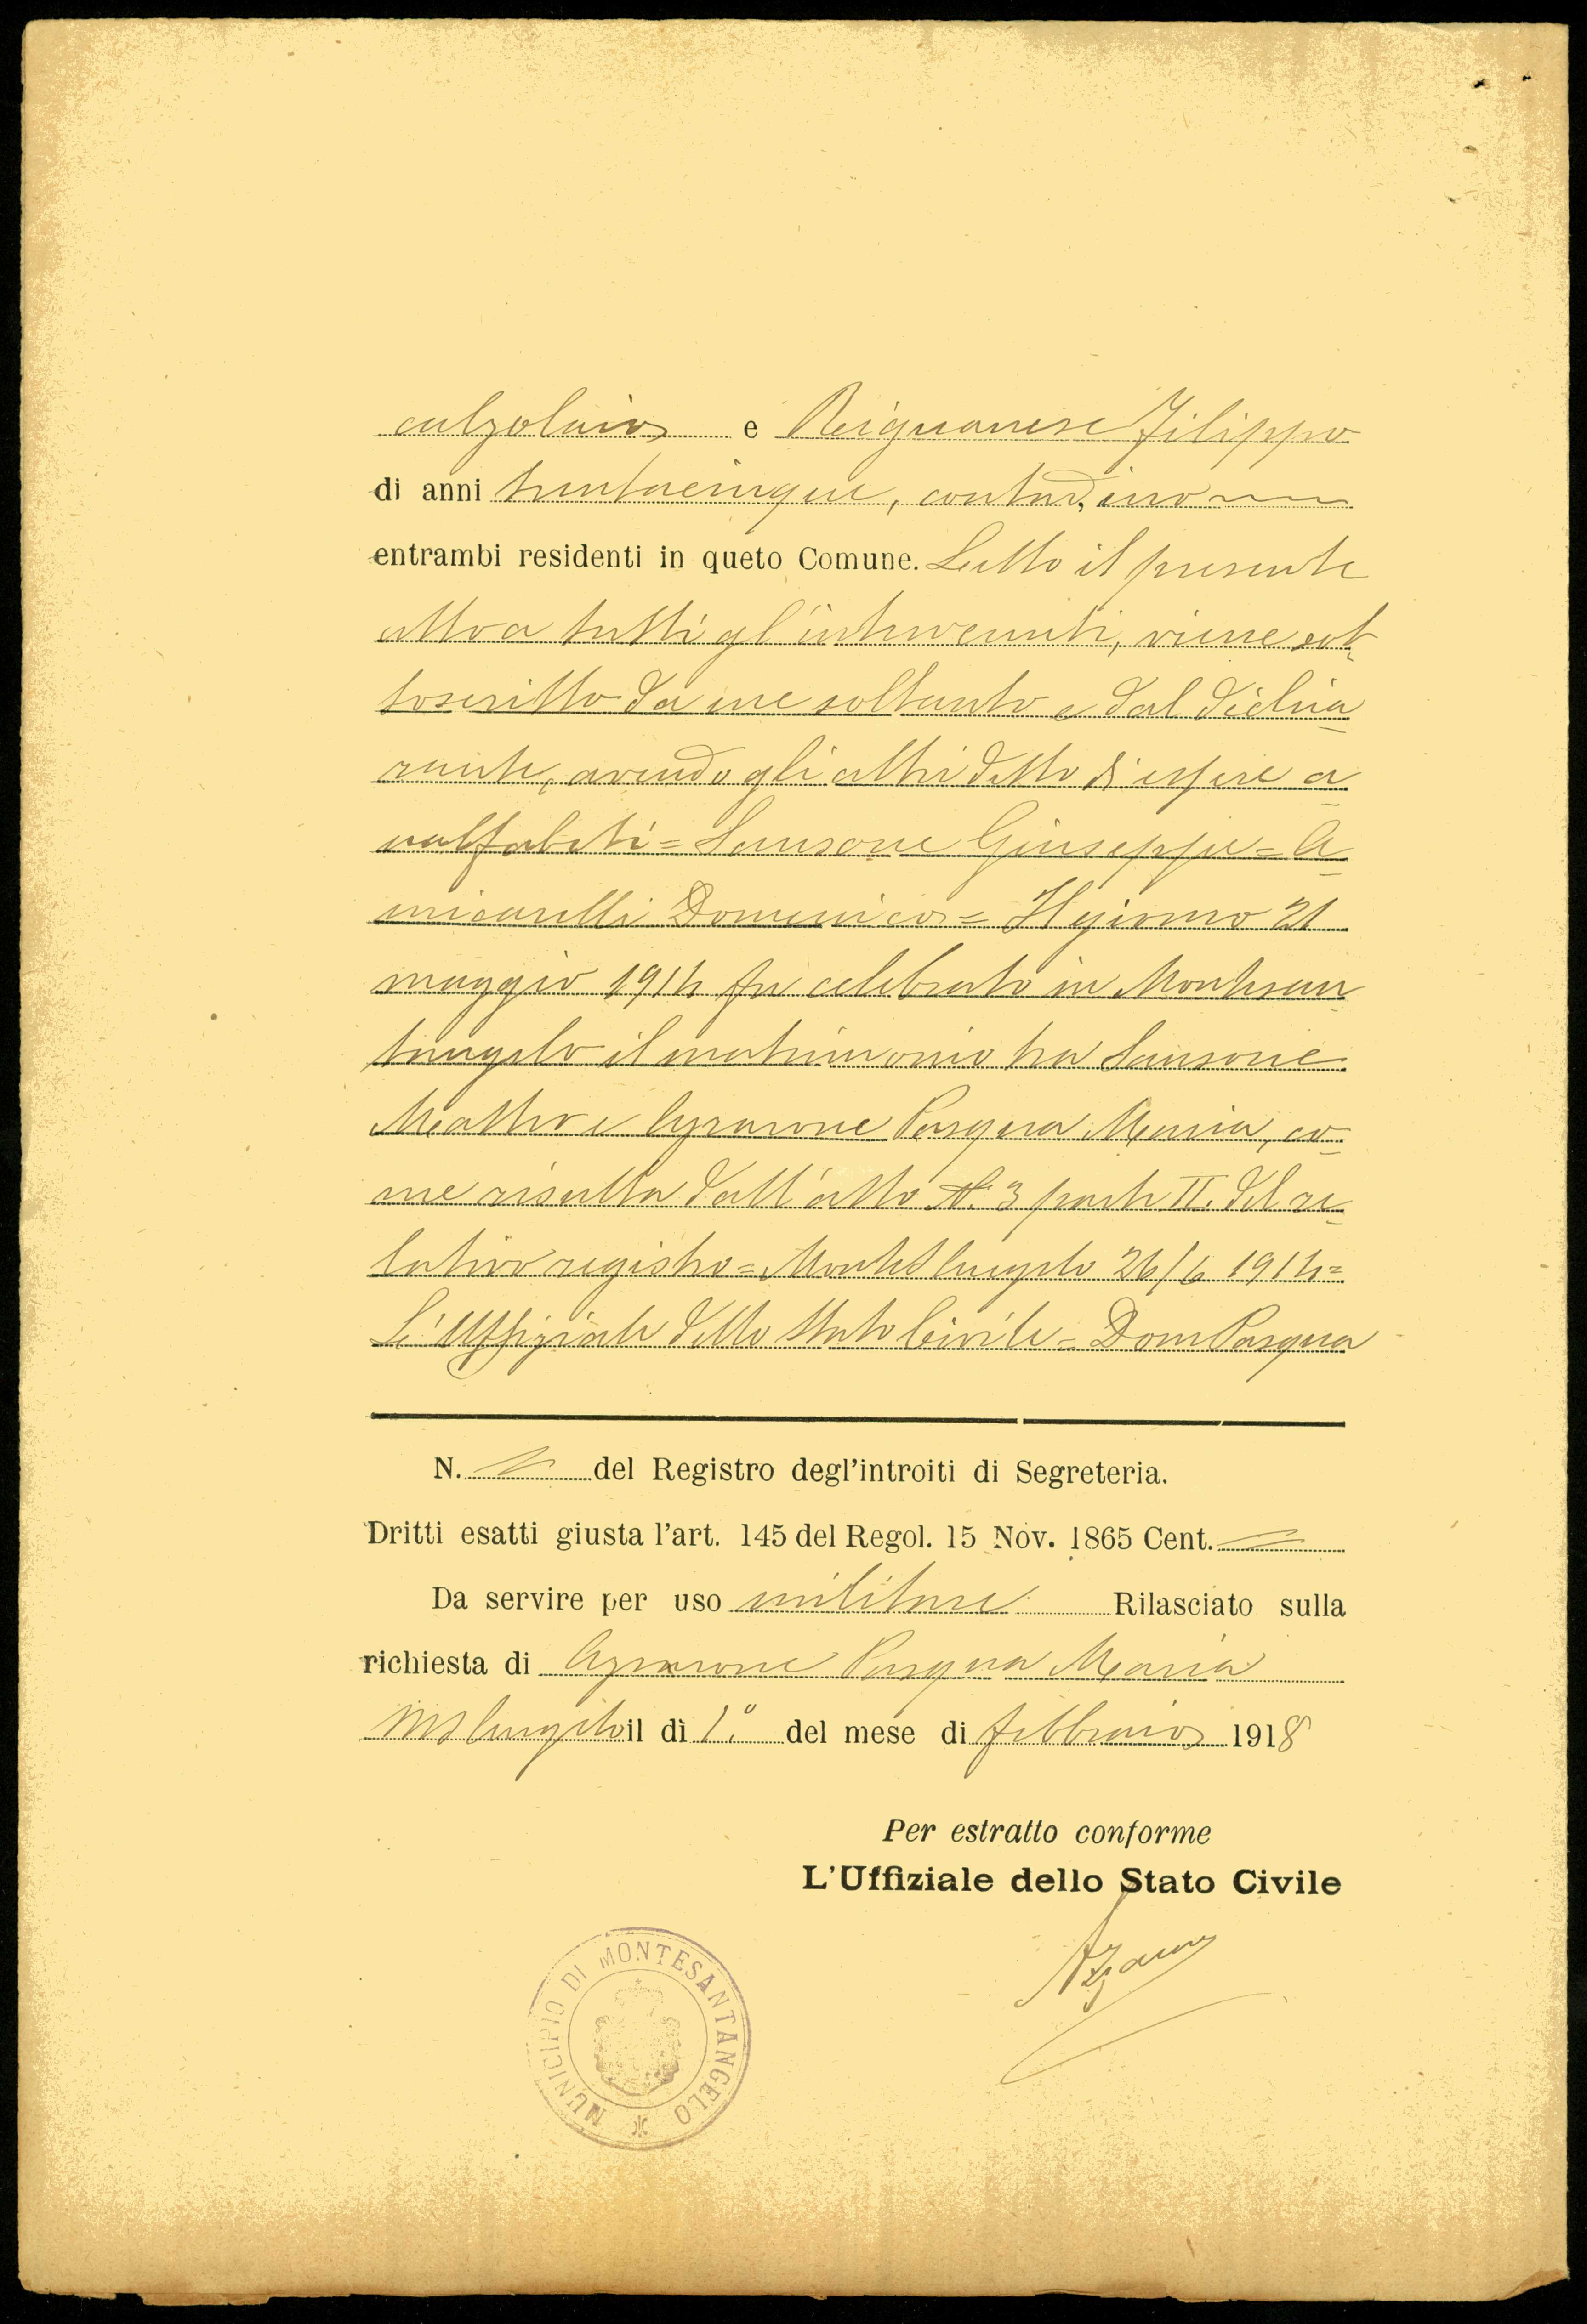 calzolaio e Reignanese Filippo
di anni trentacinque, contadino
entrambi residenti in queto Comune. Letto il presente
atto a tutti gl'intervenuti, viene sot-
toscritto da me soltanto e dal dichia-
rante, avendo gli altri detto di essere a-
nalfabeti = Sansone Giuseppe = A-
micarelli Domenico = Il giorno 21
maggio 1914 fu celebrato in Montesan-
tangelo il matrimonio tra Sansone
Matteo e Azzarone Pasqua Maria, co-
me risulta dall'atto N. 3 parte II. del re-
lativo registro = Monte S Angelo 26/6 1914 =
L'Uffiziale dello Stato Civile = Dom Pasqua
N. del Registro degl'introiti di Segreteria.
Dritti esatti giusta l'art. 145 del Regol. 15 Nov. 1865 Cent.
Da servire per uso militare Rilasciato sulla
richiesta di Azzarone Pasqua Maria
M S Angelo il dì 1.° del mese di febbraio 1918
Per estratto conforme
L'Uffiziale dello Stato Civile
MUNICIPIO DI MONTESANTANGELO